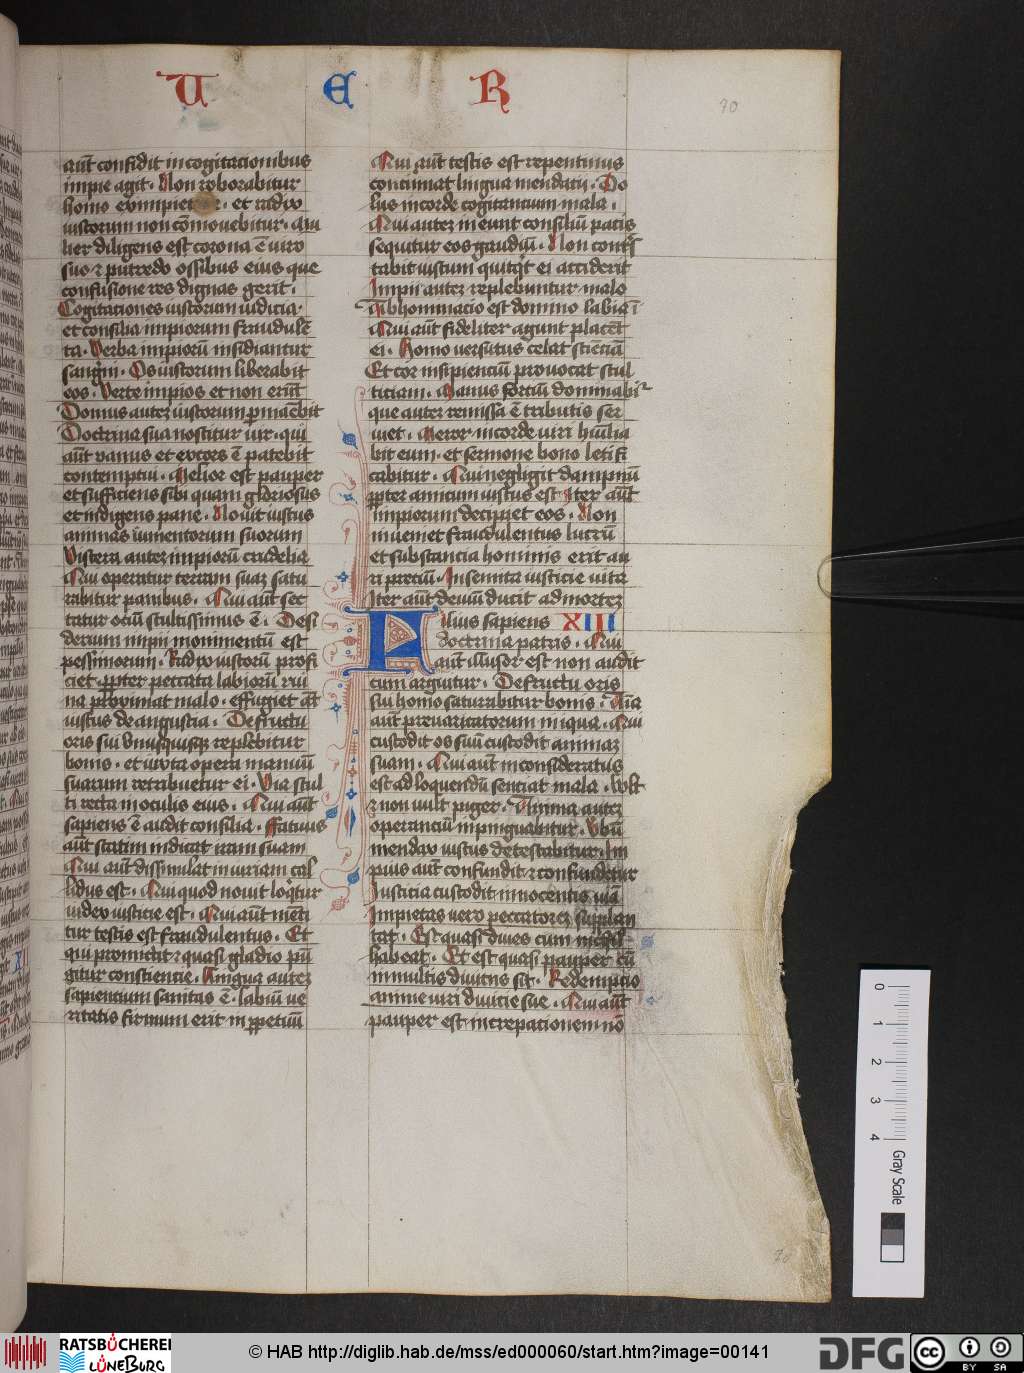 U E R
70
aut confidit in cogitationibus
impie agit. Non roborabitur
homo ex impietate. et radix
iustorum non cõmovebitur. Mu
lier diligens est corona ẽ viro
suo ⁊ putredo ossibus eius que
confusione res dignas gerit.
Cogitationes iustorum iudicia.
et consilia impiorum fraudulẽ
ta. Verba impiorũ insidiantur
sangĩni. Os iustorum liberabit
eos. Verte impios et non erũt
Domus autez iustorum pmãebit
Doctrina sua noscitur vir. qui
aũt vanus et excors ẽ patebit
contemptui. Melior est pauper
et sufficiens sibi quam gloriosus
et indigens pane. Novit iustus
animas iumentorum suorum
Viscera autez impiorũ crudelia
Qui operatur terram suaz satu
rabitur panibus. Qui aũt sec
tatur ociũ stultissimus ẽ. Desi
derium impii monimentũ est
pessimorum. Radix iustorũ profi
ciet. ppter peccata labiorũ rui
na pproximat malo. effugiet aũt
iustus de angustia. De fructu
oris sui vnusquisqz replebitur
bonis. et iuxta opera manuũ
suarum retribuetur ei. Via stul
ti recta in oculis eius. Qui aũt
sapiens ẽ audit consilia. Fatuus
aũt statim indicat iram suam
Qui aũt dissimulat iniuriam cal
lidus est. Qui quod novit loqtur
iudex iusticie est. Qui aũt mẽti
tur testis est fraudulentus. Et
qui promittit ⁊ quasi gladio pũ
gitur conscientie. Lingua autez
sapientium sanitas ẽ. labiũ ve
ritatis firmum erit in ppetuũ
Qui aũt testis est repentinus
concinnat lingua mendacij. Do
lus in corde cogitantium mala.
Qui autez ineunt consiliũ pacis
sequitur eos gaudiũ. Non contri
stabit iustum quitqt ei acciderit
Impii autez replebuntur malo
Abhominacio est domino labia
Qui aũt fideliter agunt placẽt
ei. Homo versutus celat sciẽciã
Et cor insipienciũ provocat stul
ticiam. Manus forciũ dominabi
que autez remissa ẽ tributis ser
viet. Meror in corde viri hũilia
bit eum. et sermone bono letifi
cabitur. Qui negligit dampnũ
ppter amicum iustus est Iter aũt
impiorum decipiet eos. Non
inveniet fraudulentus lucrũ
et substancia hominis erit au
ri preciũ. In semita iusticie vita
Iter aũt deviũ ducit ad mortez
Filius sapiens XIII
doctrina patris. Qui
aũt illusor est non audit
cum arguitur. De fructu oris
sui homo saturabitur bonis. Aĩa
aũt prevaricatorum iniqua. Qui
custodit os suũ custodit animaz
suam. Qui aũt inconsideratus
est ad loquendũ sentiat mala. Vult
⁊ non vult piger. Anima autez
operanciũ inpinguabitur. Vbũ
mendax iustus detestabitur. Im
pius aũt confundit ⁊ confundetur
Iusticia custodit innocentis viã
Impietas vero peccatorez supplan
tat. Est quasi dives cum nichil
habeat. Et est quasi pauper cũ
in multis diviciis sit. Redemptio
anime viri divicie sue. Qui aũt
pauper est increpationem nõ
70
0 1 2 3 4
Gray Scale
RATSBÜCHEREI
LÜNEBURG
© HAB http://diglib.hab.de/mss/ed000060/start.htm?image=00141
DFG
cc BY SA